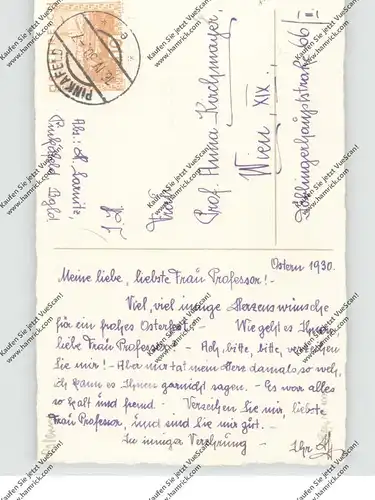 Ostern 1930.
Meine liebe, liebste Frau Professor! -
Viel, viel innige Herzenswünsche
für ein frohes Osterfest. - Wie geht es Ihnen,
liebe Frau Professor. - Ach, bitte, bitte, verzeihen
Sie mir! - Aber mir tat mein Herz damals so weh,
ich kann es Ihnen garnicht sagen. - Es war alles
so kalt und fremd. - Verzeihen Sie mir, liebste
Frau Professor, und sind Sie mir gut. -
In inniger Verehrung - Ihr
PINKAFELD
16.IV.30
Abs:
Pinkafeld Bgld
Frau
Prof. Anna Kirchmayer,
Wien XIX.
Döblingerhauptstraße 66/
Kaufen Sie jetzt VueScan!
www.hamrick.com